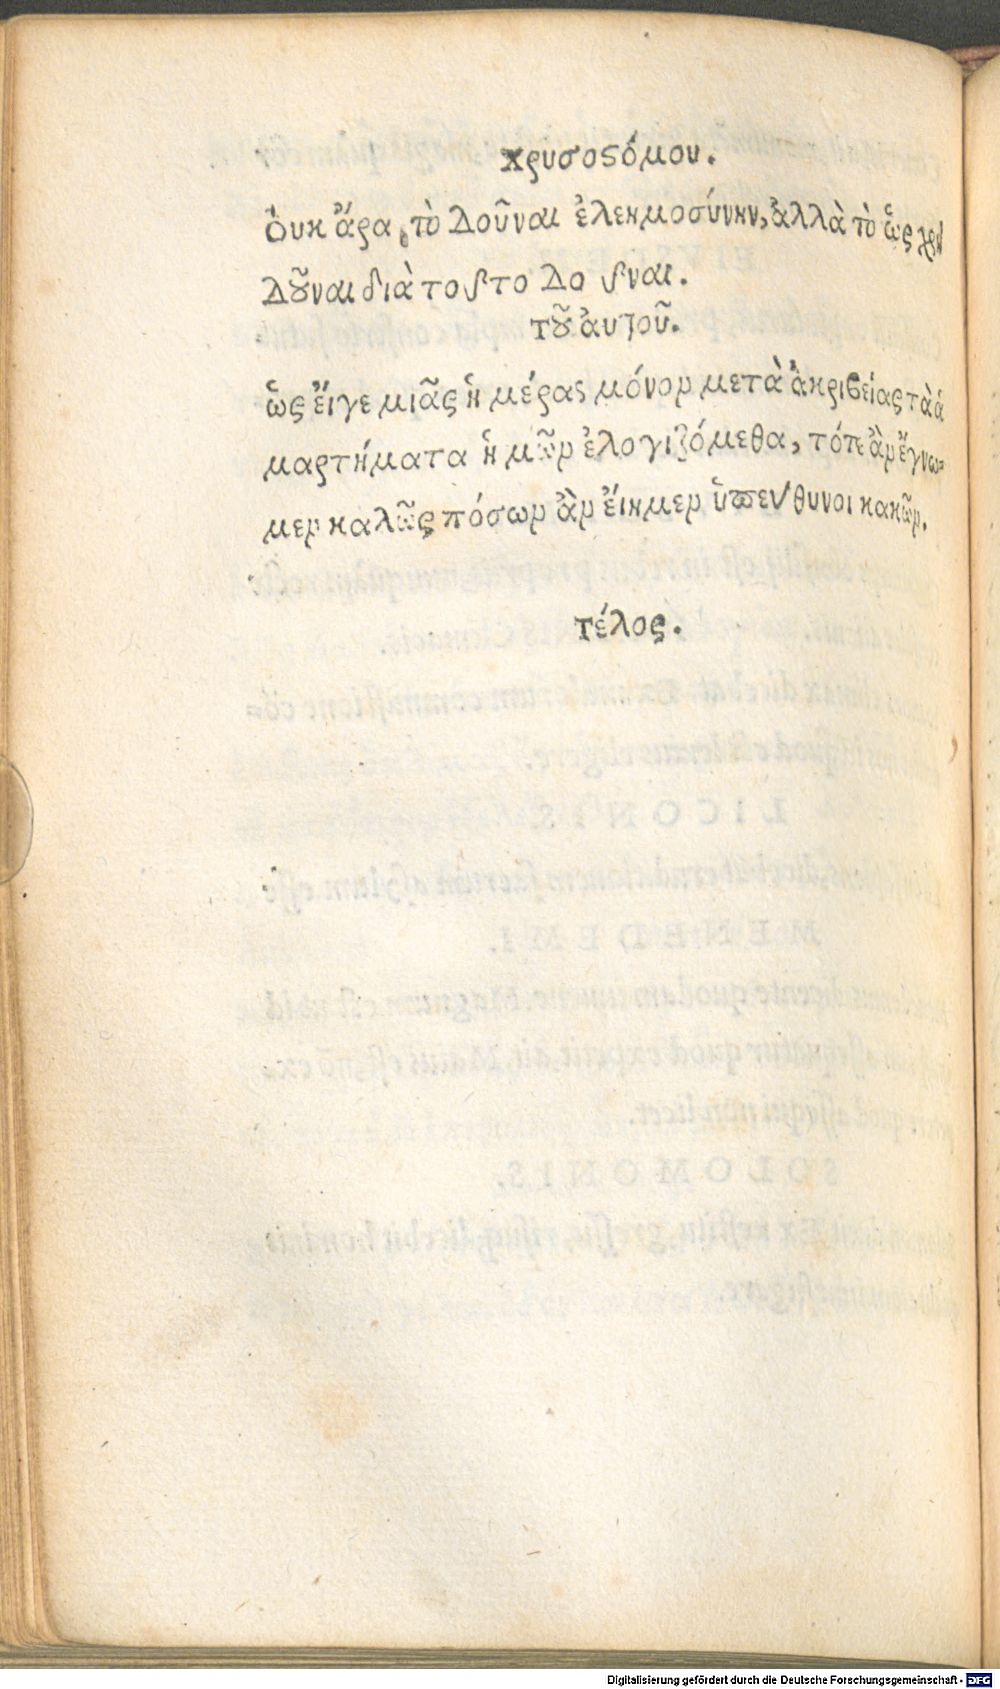 χρυσοςόμου.
ὀυκ ἄρα, τὸ Δοῦναι ἐλεημοσύνην, ἀλλὰ τὸ ὥς χρὴ
Δȣ͂ναι διὰ τοȣτο Δοȣναι.
τȣ͂ ἀυτοῦ.
ὥς ἔιγε μιᾶς ἡ μέρας μόνον μετὰ ἀκριβείας τὰ ἁ
μαρτήματα ἡ μῶν ἐλο γιζόμεθα, τότε ἂν ἔγνω-
μεν καλῶς πόσων ἂν ἔιημεν ὑπεύθυνοι κακῶν.
τέλος.
Digitalisierung gefördert durch die Deutsche Forschungsgemeinschaft - DFG